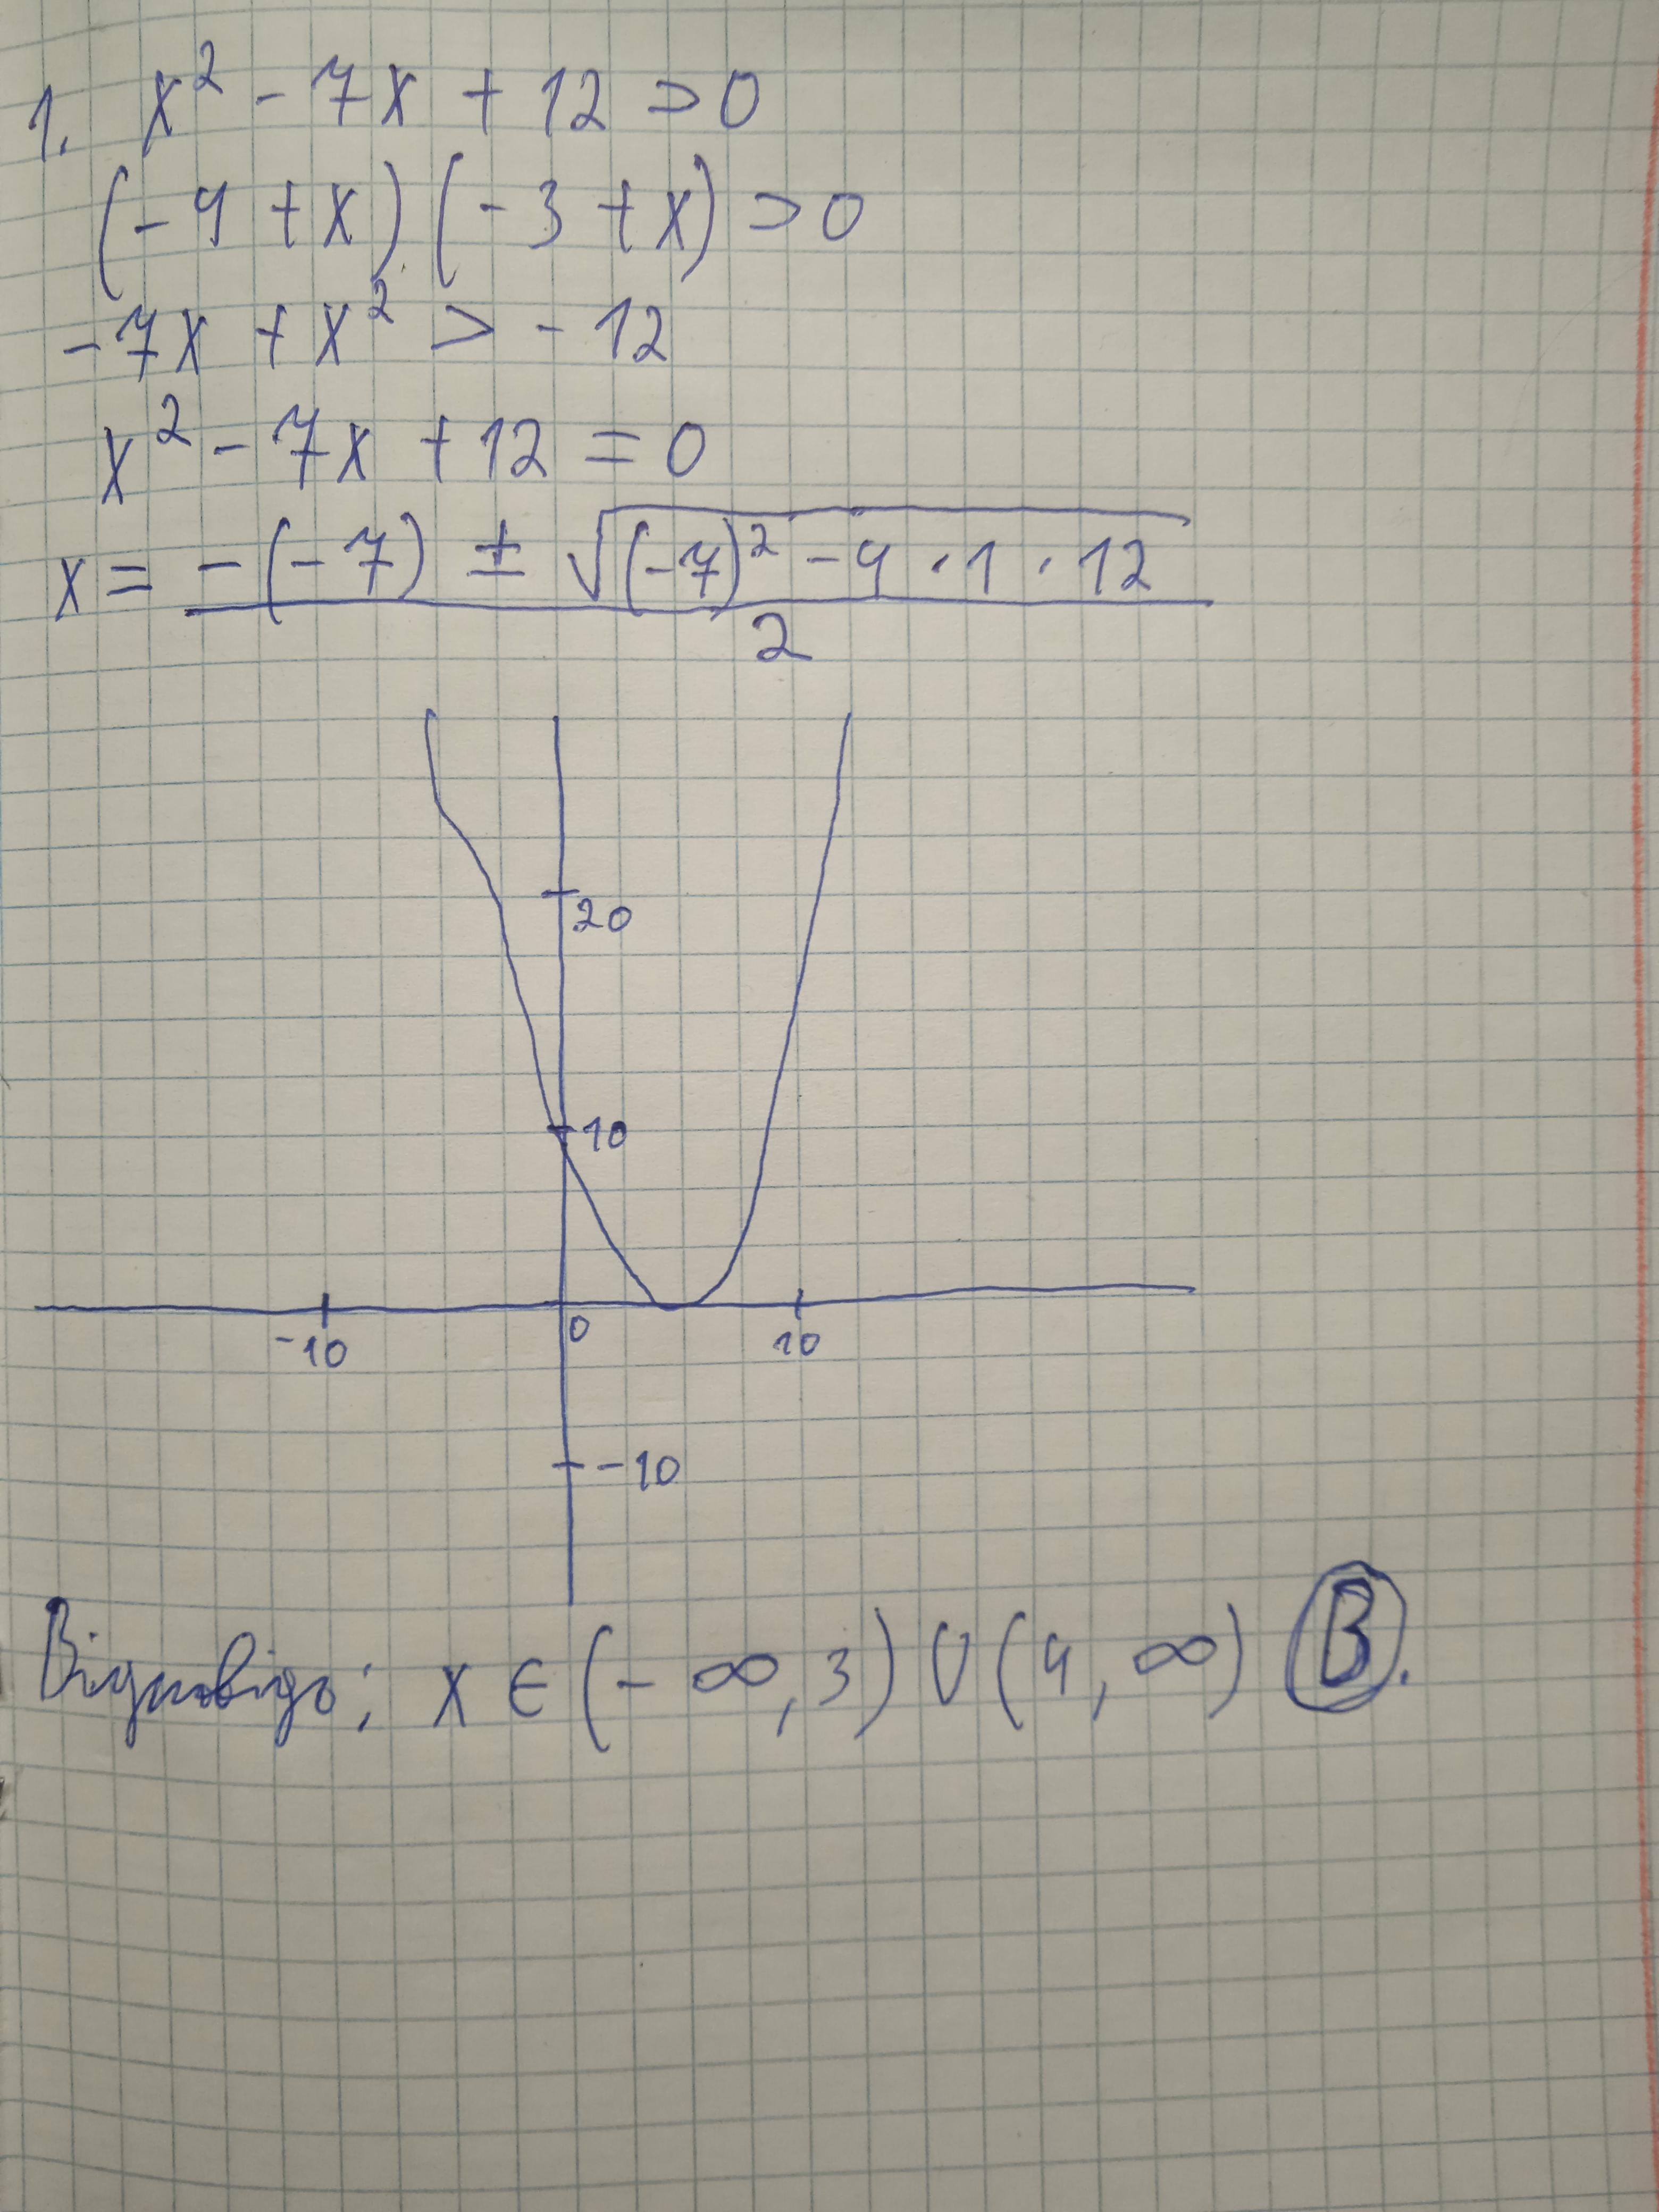 1. x² - 7x + 12 > 0
(-4 + x)(-3 + x) > 0
-7x + x² > -12
x² - 7x + 12 = 0
x = (-(-7) ± √((-7)² - 4 · 1 · 12)) / 2
20
10
-10 0 10
-10
Відповідь: x ∈ (-∞, 3) ∪ (4, ∞) В.